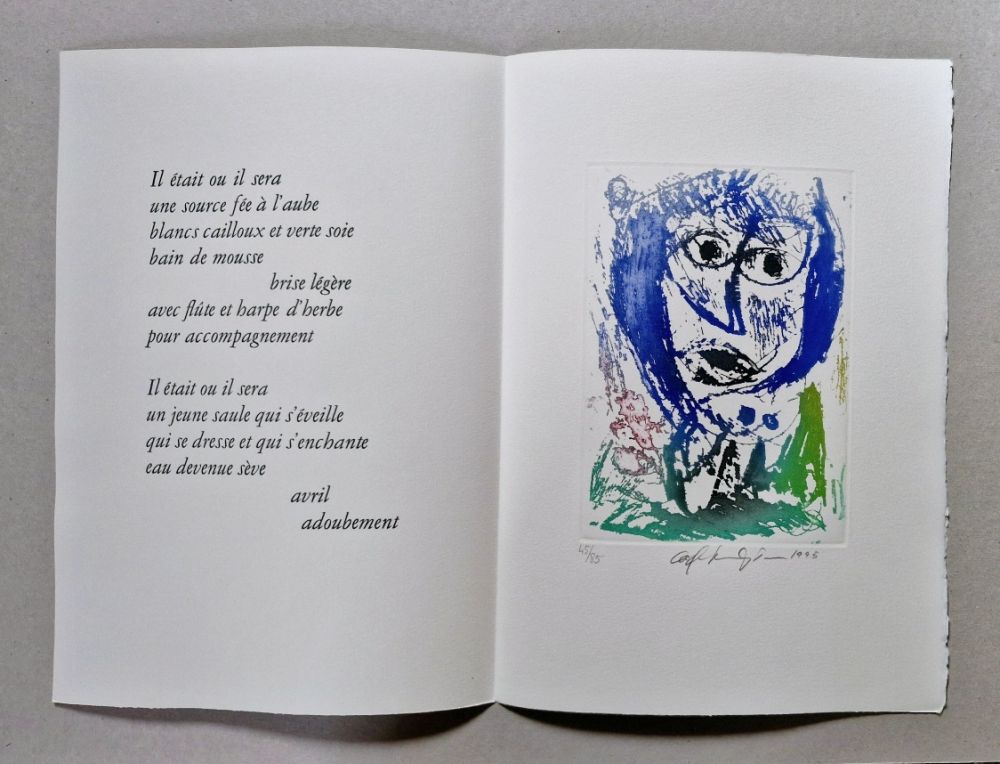 Il était ou il sera
une source fée à l'aube
blancs cailloux et verte soie
bain de mousse
brise légère
avec flûte et harpe d'herbe
pour accompagnement
Il était ou il sera
un jeune saule qui s'éveille
qui se dresse et qui s'enchante
eau devenue sève
avril
adoubement
45/85
1995